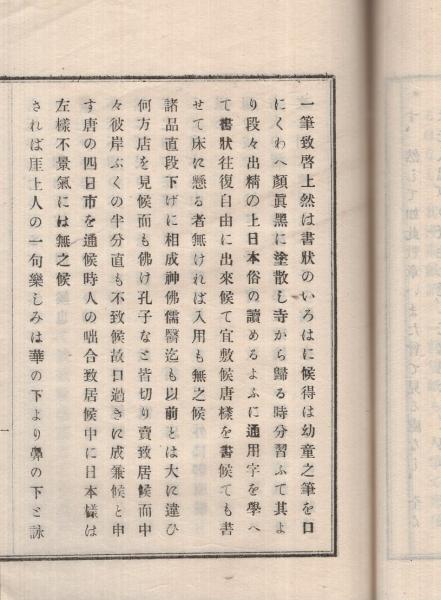 一筆致啓上然は書狀のいろはに候得は幼童之筆を口
にくわへ顏眞黑に塗散し寺から歸る時分習ふて其よ
り段々出精の上日本俗の讀めるよふに通用字を學へ
て書狀往復自由に出來候て宜敷候唐樣を書候ても書
せて床に懸る者無ければ入用も無之候
諸品直段下げに相成神佛儒醫迄も以前とは大に違ひ
何方店を見候而も佛け孔子なと皆切り賣致居候而中
々彼岸ぶくの半分直も不致候故口過きに成兼候と申
す唐の四日市を通候時人の咄合致居候中に日本樣は
左樣不景氣には無之候
されば厓上人の一句樂しみは華の下より鼻の下と詠
一